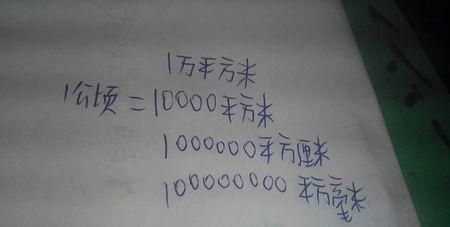 1万平方米
1公顷=10000平方米
1000000平方厘米
100000000平方毫米